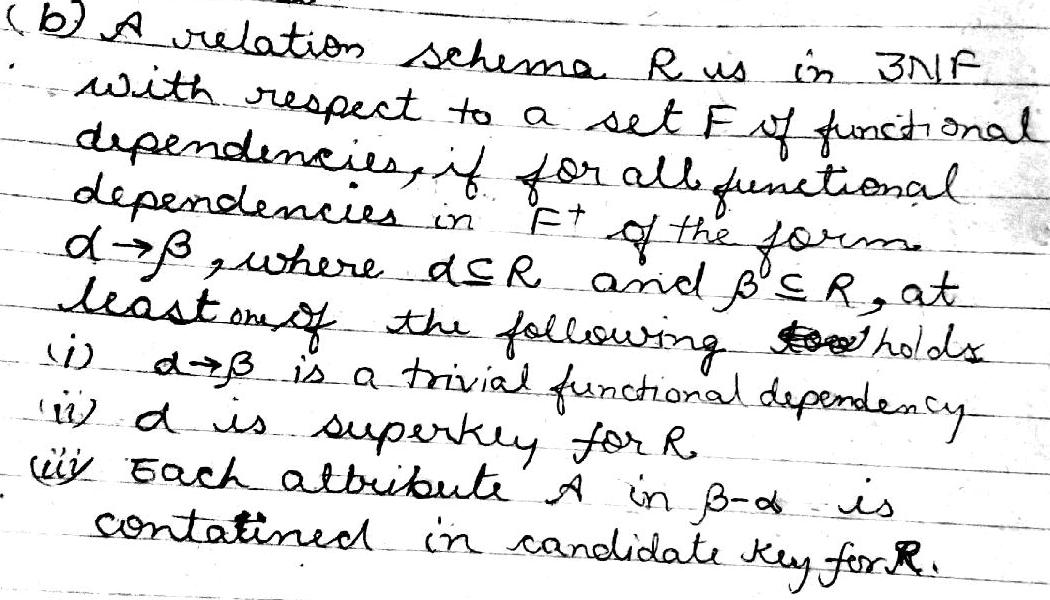 (b) A relation schema R is in 3NF
with respect to a set F of functional
dependencies, if for all functional
dependencies in F+ of the form
α→β, where α⊆R and β⊆R, at
least one of the following holds
(i) α→β is a trivial functional dependency
(ii) α is superkey for R
(iii) Each attribute A in β-α is
contatined in candidate key for R.